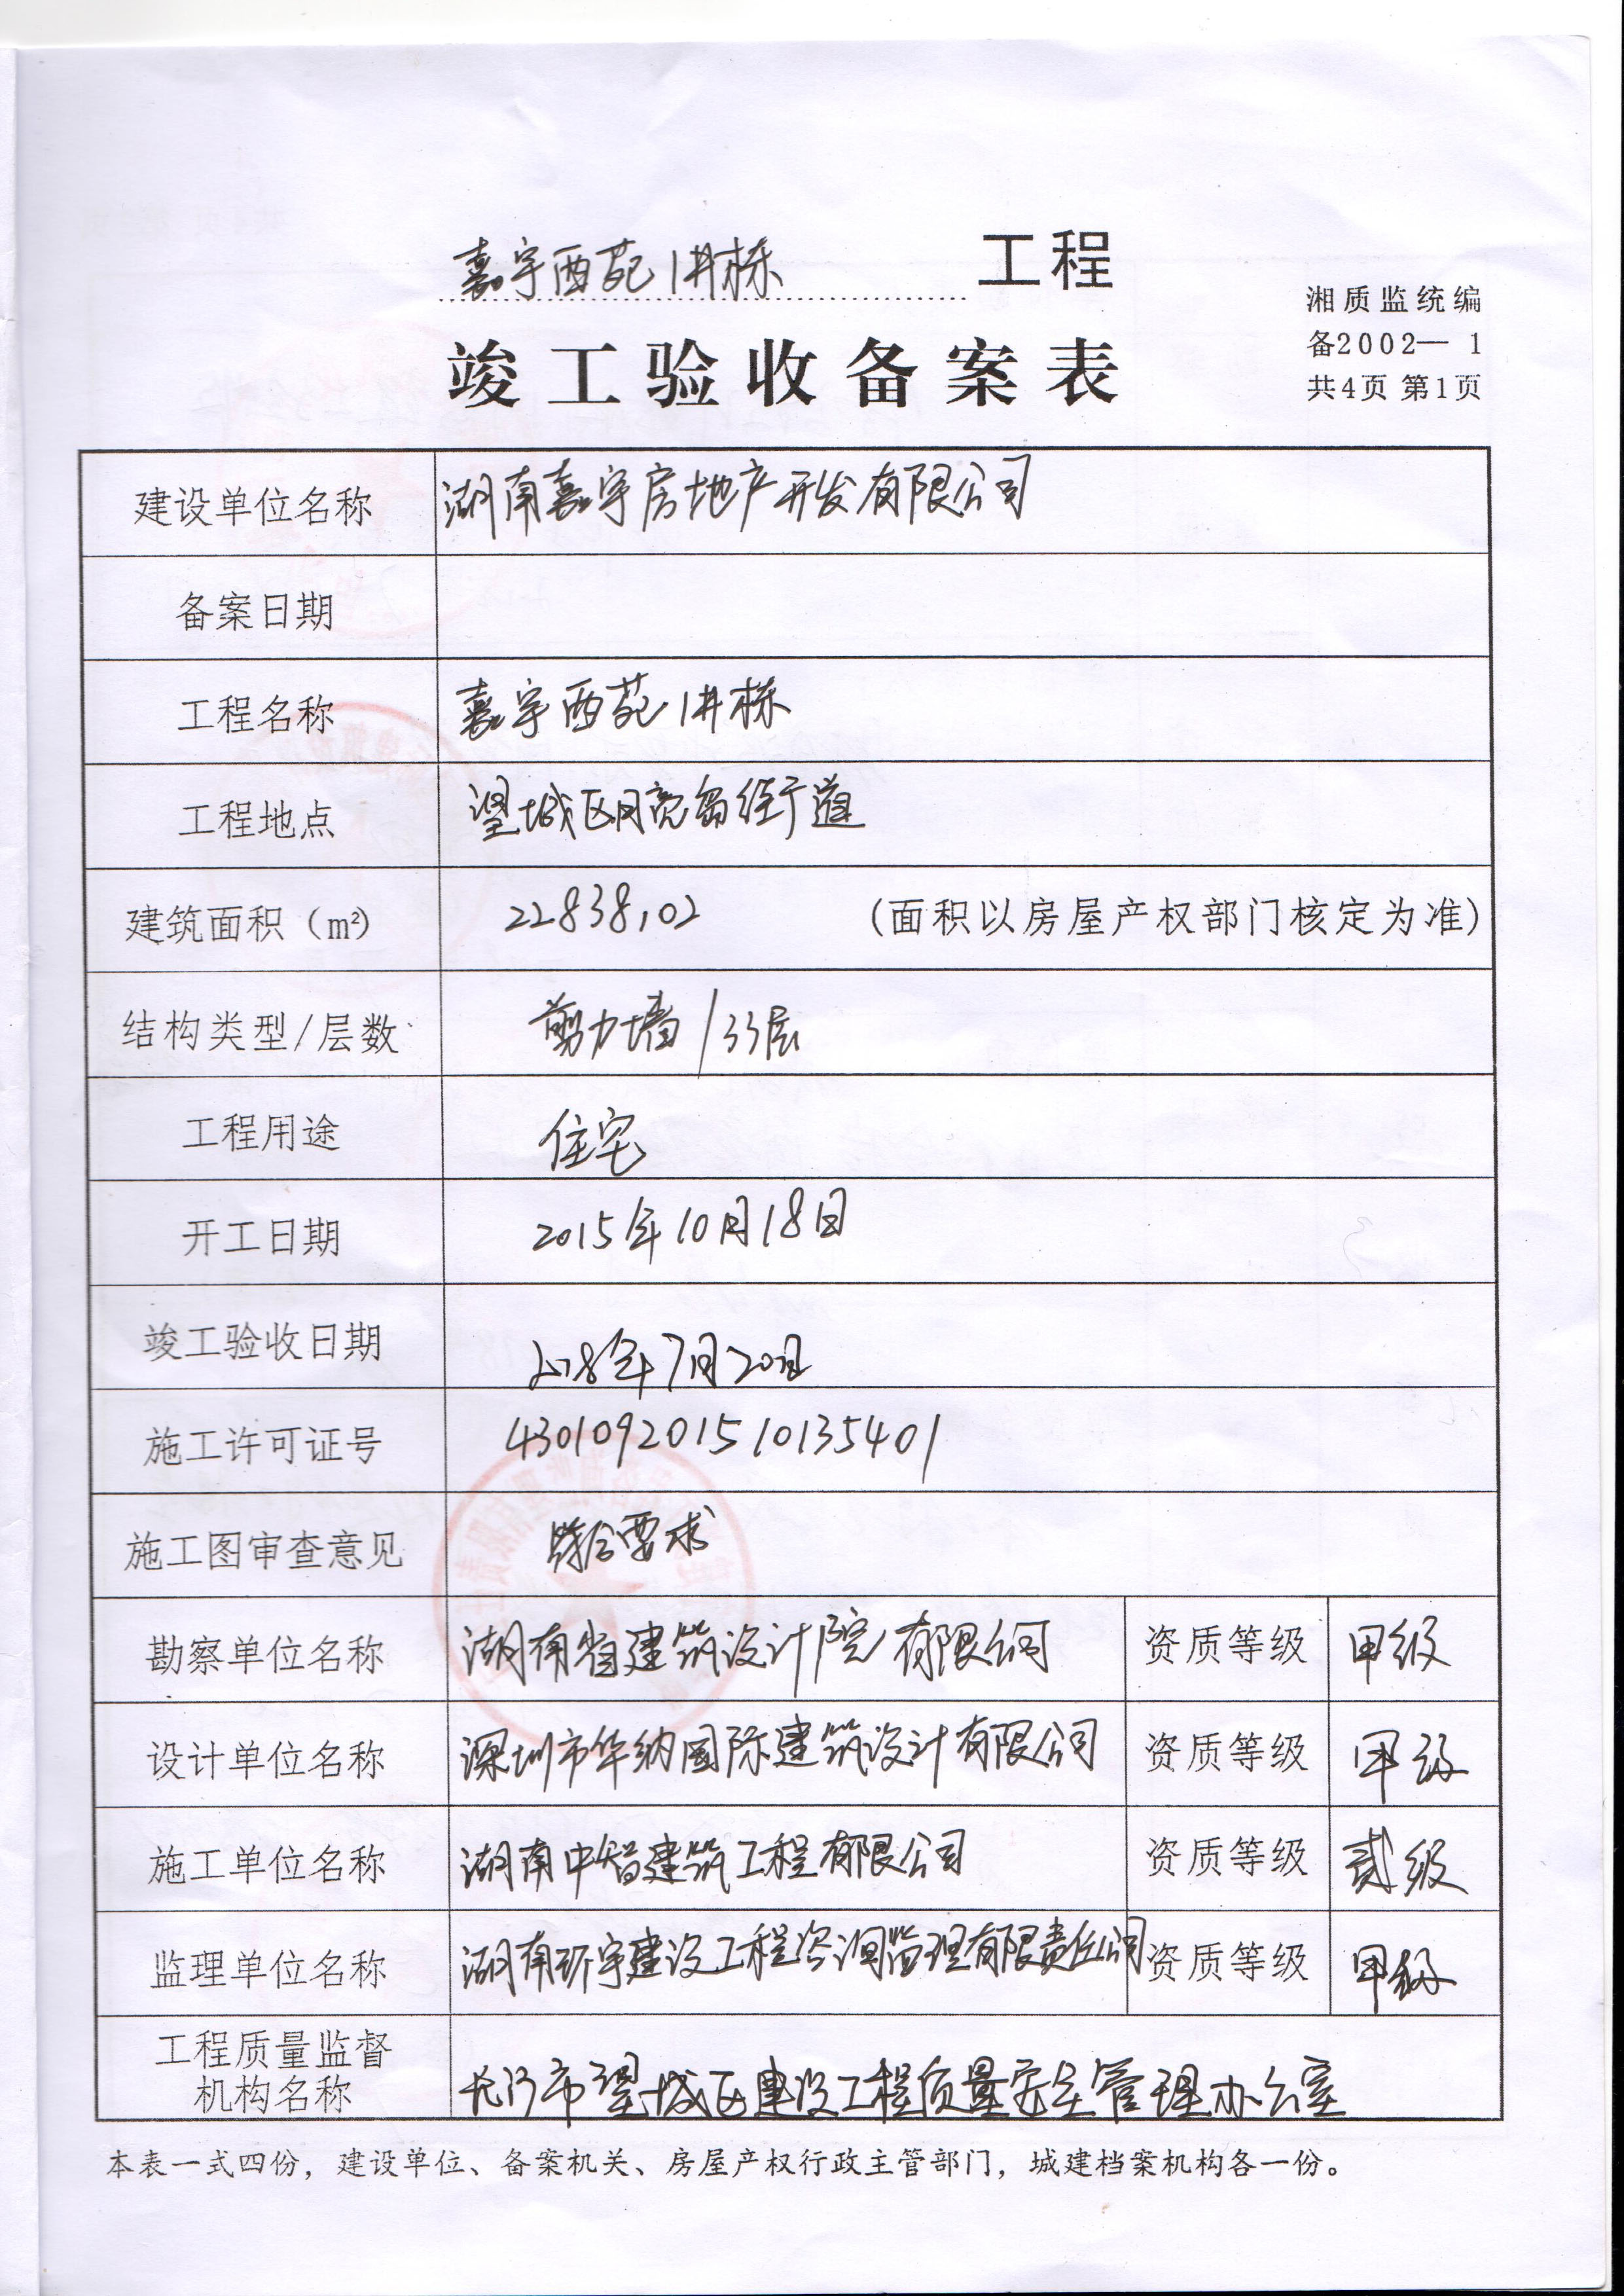 嘉宇西苑1#栋 工程
竣工验收备案表
湘质监统编
备2002— 1
共4页 第1页
建设单位名称 湖南嘉宇房地产开发有限公司
备案日期
工程名称 嘉宇西苑1#栋
工程地点 望城区月亮岛街道
建筑面积（m²） 22838.02 (面积以房屋产权部门核定为准)
结构类型/层数 剪力墙/33层
工程用途 住宅
开工日期 2015年10月18日
竣工验收日期 2018年7月20日
施工许可证号 430109201510135401
施工图审查意见 符合要求
勘察单位名称 湖南省建筑设计院有限公司 资质等级 甲级
设计单位名称 深圳市华纳国际建筑设计有限公司 资质等级 甲级
施工单位名称 湖南中智建筑工程有限公司 资质等级 贰级
监理单位名称 湖南环宇建设工程咨询监理有限责任公司 资质等级 甲级
工程质量监督
机构名称 长沙市望城区建设工程质量安全管理办公室
本表一式四份，建设单位、备案机关、房屋产权行政主管部门，城建档案机构各一份。